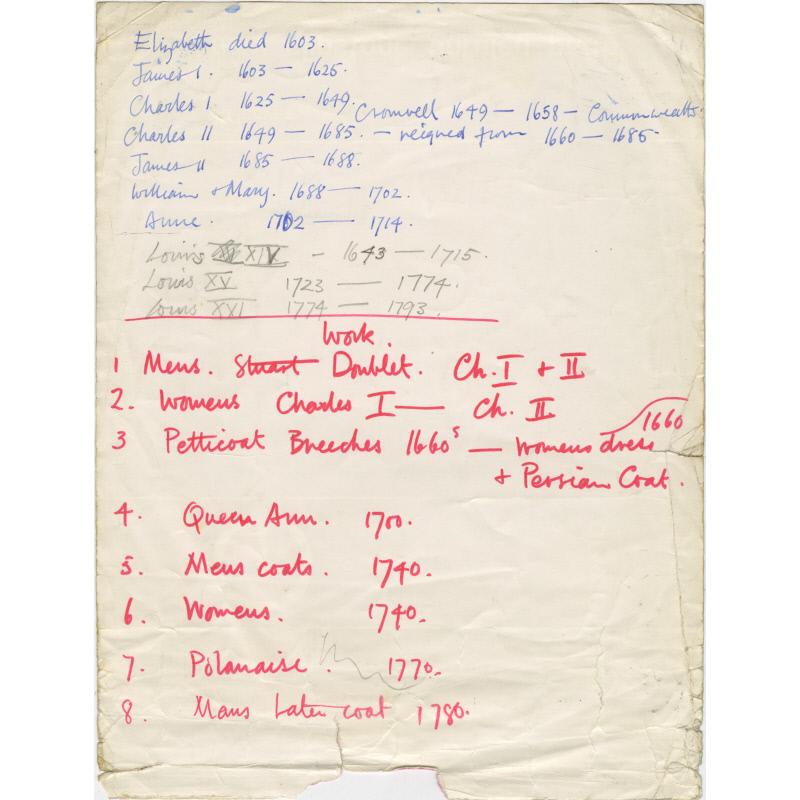 Elizabeth died 1603.
James I. 1603 — 1625.
Charles I 1625 — 1649. Cromwell 1649 — 1658 — Commonwealth.
Charles II 1649 — 1685. — reigned from 1660 — 1685.
James II 1685 — 1688.
William + Mary. 1688 — 1702.
Anne. 1702 — 1714.
Louis XIV — 1643 — 1715.
Louis XV 1723 — 1774.
Louis XXI 1774 — 1793.
Work.
1 Mens. Stuart Doublet. Ch. I + II
2. Womens Charles I — Ch. II
3 Petticoat Breeches 1660s — Womens dress 1660
+ Persian Coat.
4. Queen Ann. 1700.
5. Mens coats. 1740.
6. Womens. 1740.
7. Polanaise. 1770.
8. Mans Later coat 1780.